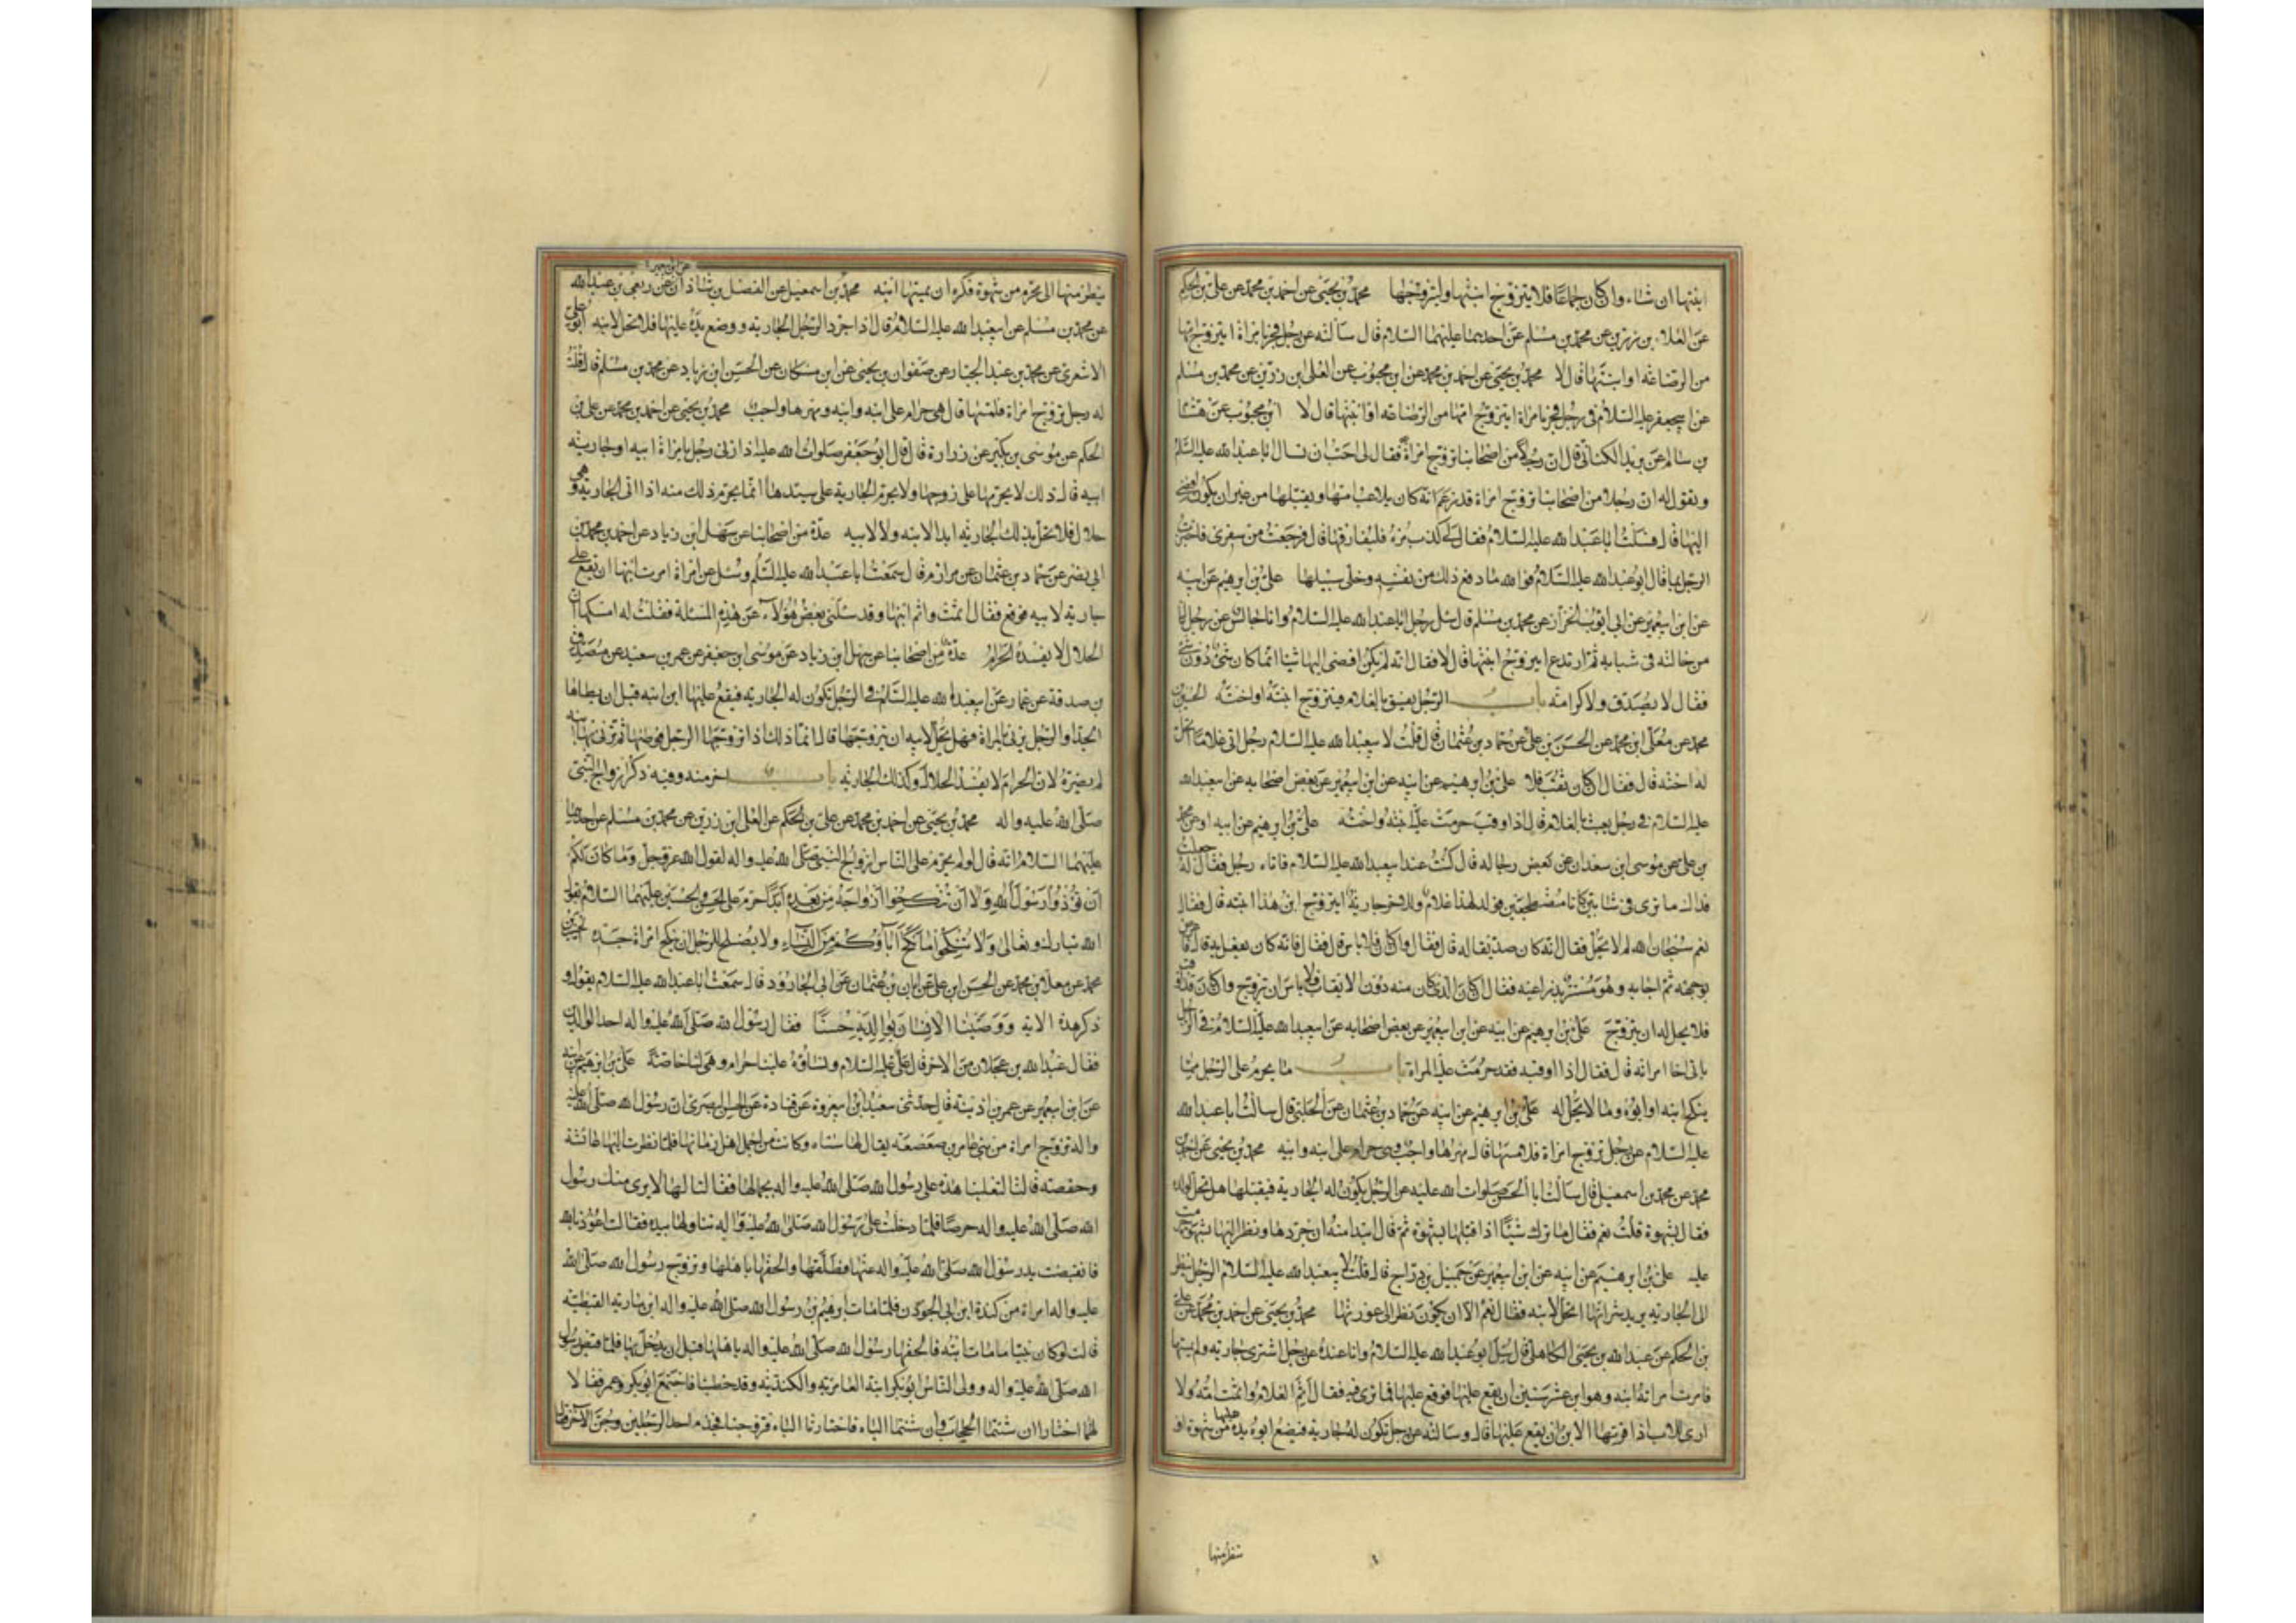 ابنتها ان شاء وان كان جماعا فلا يتزوج ابنتها وليتزوجها محمد بن يحيى عن احمد بن محمد عن علي بن الحكم
عن العلاء بن رزين عن محمد بن مسلم عن احدهما عليهما السلام قال سألته عن رجل فجر بامراة ايتزوج امها
من الرضاعة او ابنتها قال لا محمد بن يحيى عن احمد بن محمد عن ابن محبوب عن العلى ابن رزين عن محمد بن مسلم
عن ابيجعفر عليه السلام في رجل فجر بامراة ايتزوج امها من الرضاعة او ابنتها قال لا ابن محبوب عن هشام
بن سالم عن يزيد الكناسي قال ان رجلا من اصحابنا تزوج امراة فقال لي احب ان تسال ابا عبد الله عليه السلم
وتقول له ان رجلا من اصحابنا تزوج امراة قد زعم انه كان يلاعب امها ويقبلها من غير ان يكون افضى
اليها قال فسالت ابا عبد الله عليه السلام فقال لي كذب مره فليفارقها قال فرجعت من سفري فاخبرت
الرجل بما قال ابو عبد الله عليه السلام فو الله ما دفع ذلك من نفسه وخلى سبيلها علي بن ابرهيم عن ابيه
عن ابن ابيعمير عن ابي ايوب الخزاز عن محمد بن مسلم قال سئل رجل ابا عبد الله عليه السلام وانا جالس عن رجل نال
من خالته في شبابه ثم ارتدع ايتزوج ابنتها قال لا فقال انه لم يكن افضى اليها شيئا انما كان شيء دون شيء
فقال لا يصدق ولا كرامة باب الرجل يفسق بالغلام فيتزوج ابنته او اخته الحسين بن
محمد عن معلى ابن محمد عن الحسن بن علي عن حماد بن عثمان قال قلت لابيعبد الله عليه السلام رجل اتى غلاما اتحل
له اخته قال فقال ان كان ثقب فلا علي بن ابرهيم عن ابيه عن ابن ابيعمير عن بعض اصحابه عن ابيعبد الله
عليه السلام في رجل يعبث بالغلام قال اذا اوقب حرمت عليه ابنته واخته علي بن ابرهيم عن ابيه او عن محمد
بن علي عن موسى ابن سعدان عن بعض رجاله قال كنت عند ابيعبد الله عليه السلام فاتاه رجل فقال له جعلت
فداك ما ترى في شابين كانا مضطجعين فولد لهذا غلام وللاخر جارية ايتزوج ابن هذا ابنة هذا قال فقال
نعم سبحان الله لم لا يحل فقال انه كان صديقا له قال فقال وان كان فلا باس قال فقال فانه كان يفعل به قال فاعرض
بوجهه ثم اجابه وهو مستتر بذراعيه فقال ان كان الذي كان منه دون الايقاب فلا باس ان يتزوج وان كان قد اوقب
فلا يحل له ان يتزوج علي بن ابرهيم عن ابيه عن ابن ابيعمير عن بعض اصحابه عن ابيعبد الله عليه السلام في الرجل
ياتي اخا امراته قال فقال اذا اوقبه فقد حرمت عليه المراة باب ما يحرم على الرجل مما
ينكح ابنه او ابوه وما لا يحل له علي بن ابرهيم عن ابيه عن حماد بن عثمان عن الحلبي قال سالت ابا عبد الله
عليه السلام عن رجل تزوج امراة فلامسها قال مهرها واجب وهي حرام على ابنه وابيه محمد بن يحيى عن احمد بن
محمد عن محمد بن اسمعيل قال سالت ابا الحسن صلوات الله عليه عن الرجل يكون له الجارية فيقبلها هل تحل لولده
فقال بشهوة قلت نعم فقال ما ترك شيئا اذا قبلها بشهوة ثم قال ابتداء منه ان جردها ونظر اليها بشهوة حرمت
عليه علي بن ابرهيم عن ابيه عن ابن ابيعمير عن جميل بن دراج قال قلت لابيعبد الله عليه السلام الرجل ينظر
الى الجارية يريد شراءها اتحل لابنه فقال نعم الا ان يكون نظر الى عورتها محمد بن يحيى عن احمد بن محمد عن علي
بن الحكم عن عبد الله بن يحيى الكاهلي قال سئل ابو عبد الله عليه السلام وانا عنده عن رجل اشترى جارية ولم يمسها
فامرت امراته ابنه وهو ابن عشر سنين ان يقع عليها فوقع عليها فما ترى فيه فقال اثم الغلام واثمت امه ولا
ارى للاب اذا قربها الابن ان يقع عليها قال وسالته عن رجل تكون له جارية فيضع ابوه يده عليها من شهوة او
ينظر منها
ينظر منها الى محرم من شهوة فكره ان يمسها ابنه محمد بن اسمعيل عن الفضل بن شاذان عن ربعي بن عبد الله
عن محمد بن مسلم عن ابيعبد الله عليه السلام قال اذا جرد الرجل الجارية ووضع يده عليها فلا تحل لابنه ابو علي
الاشعري عن محمد بن عبد الجبار عن صفوان بن يحيى عن ابن مسكان عن الحسن ابن زياد عن محمد بن مسلم قال قلت
له رجل تزوج امراة فلمسها قال هي حرام على ابنه وابيه ومهرها واجب محمد بن يحيى عن احمد بن محمد عن علي بن
الحكم عن موسى بن بكير عن زرارة قال قال ابو جعفر صلوات الله عليه اذا زنى رجل بامراة ابيه او جارية
ابيه فان ذلك لا يحرمها على زوجها ولا يحرم الجارية على سيدها انما يحرم ذلك منه اذا اتى الجارية وهي
حلال فلا تحل بذلك الجارية ابدا لابنه ولا لابيه عدة من اصحابنا عن سهل ابن زياد عن احمد بن محمد بن
ابي نصر عن حماد بن عثمان عن مرازم قال سمعت ابا عبد الله عليه السلم وسئل عن امراة امرت ابنها ان يقع على
جارية لابيه فوقع فقال اثمت واثم ابنها وقد سئلني بعض هؤلاء عن هذه المسئلة فقلت له امسكها ان
الحلال لا يفسده الحرام عدة من اصحابنا عن سهل ابن زياد عن موسى ابن جعفر عن عمر بن سعيد عن مصدق
بن صدقة عن عمار عن ابيعبد الله عليه السلم في الرجل تكون له الجارية فيقع عليها ابن ابنه قبل ان يطاها
الجد او الرجل يزني بالمراة فهل يحل لابيه ان يتزوجها قال لا انما ذلك اذا تزوجها الرجل فوطئها ثم زنى بها ابنه
لم يضره لان الحرام لا يفسد الحلال وكذلك الجارية باب اخر منه وفيه ذكر ازواج النبي
صلى الله عليه واله محمد بن يحيى عن احمد بن محمد عن علي بن الحكم عن العلى ابن رزين عن محمد بن مسلم عن احدهما
عليهما السلام انه قال لو لم يحرم على الناس ازواج النبي صلى الله عليه واله لقول الله عز وجل وما كان لكم
ان تؤذوا رسول الله ولا ان تنكحوا ازواجه من بعده ابدا حرم على الحسن والحسين عليهما السلام بقول
الله تبارك وتعالى ولا تنكحوا ما نكح اباؤكم من النساء ولا يصلح للرجل ان ينكح امراة جده الحسين بن
محمد عن معلى ابن محمد عن الحسن ابن علي عن ابان بن عثمان عن ابي الجارود قال سمعت ابا عبد الله عليه السلام يقول و
ذكر هذه الاية ووصينا الانسان بوالديه حسنا فقال رسول الله صلى الله عليه واله احد الوالدين
فقال عبد الله بن عجلان من الاخر قال علي عليه السلام ونساؤه علينا حرام وهي لنا خاصة علي بن ابرهيم عن ابيه
عن ابن ابيعمير عن عمر بن اذينة قال حدثني سعيد ابن ابيعروة عن قتادة عن الحسن البصري ان رسول الله صلى الله عليه
واله تزوج امراة من بني عامر بن صعصعة يقال لها سناء وكانت من اجمل اهل زمانها فلما نظرت اليها عائشة
وحفصة قالتا لتغلبنا هذه على رسول الله صلى الله عليه واله بجمالها فقالتا لها لا يرى منك رسول
الله صلى الله عليه واله حرصا فلما دخلت على رسول الله صلى الله عليه واله تناولها بيده فقالت اعوذ بالله
فانقبضت يد رسول الله صلى الله عليه واله عنها فطلقها والحقها باهلها وتزوج رسول الله صلى الله
عليه واله امراة من كندة ابنة ابي الجون فلما مات ابرهيم بن رسول الله صلى الله عليه واله ابن مارية القبطية
قالت لو كان نبيا ما مات ابنه فالحقها رسول الله صلى الله عليه واله باهلها قبل ان يدخل بها فلما قبض رسول
الله صلى الله عليه واله وولى الناس ابو بكر اتته العامرية والكندية وقد خطبتا فاجتمع ابو بكر وعمر فقالا
لهما اختارا ان شئتما الحجاب وان شئتما الباه فاختارتا الباه فتزوجتا فجذم احد الرجلين وجن الاخر قال